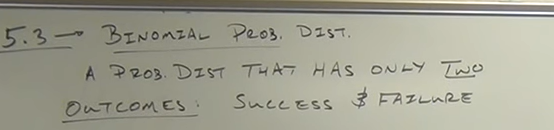 5.3 → BINOMIAL PROB. DIST.
A PROB. DIST THAT HAS ONLY TWO
OUTCOMES: SUCCESS & FAILURE